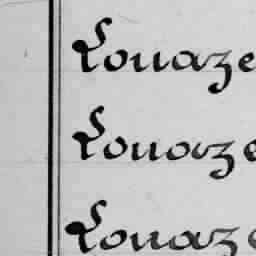 Louaze
Louaze
Louaze